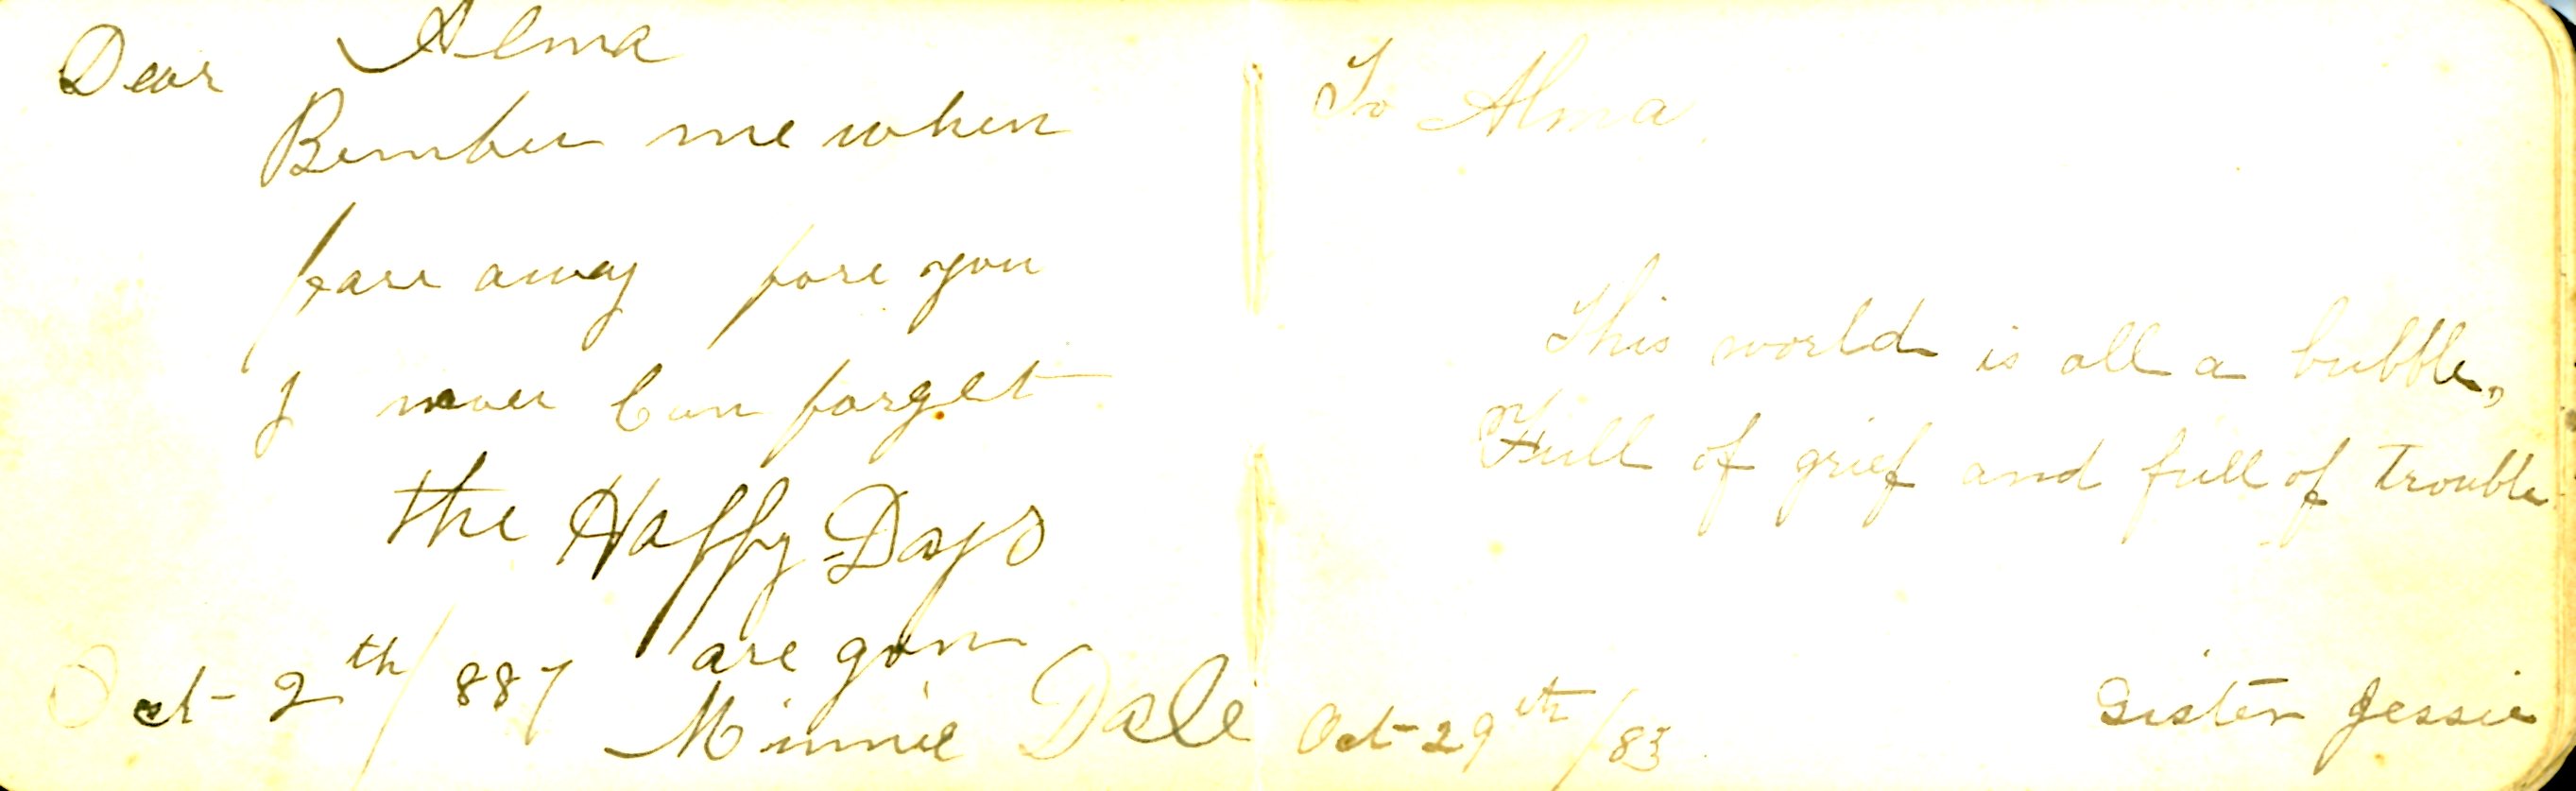 Dear Alma
Bember me when
farr away fore you
I never Can forget
the Happy Days
are gon
Oct 2th/887
Minnie Dale
To Alma.
This world is all a bubble,
Full of grief and full of trouble
Sister Jessie
Oct 29th/83